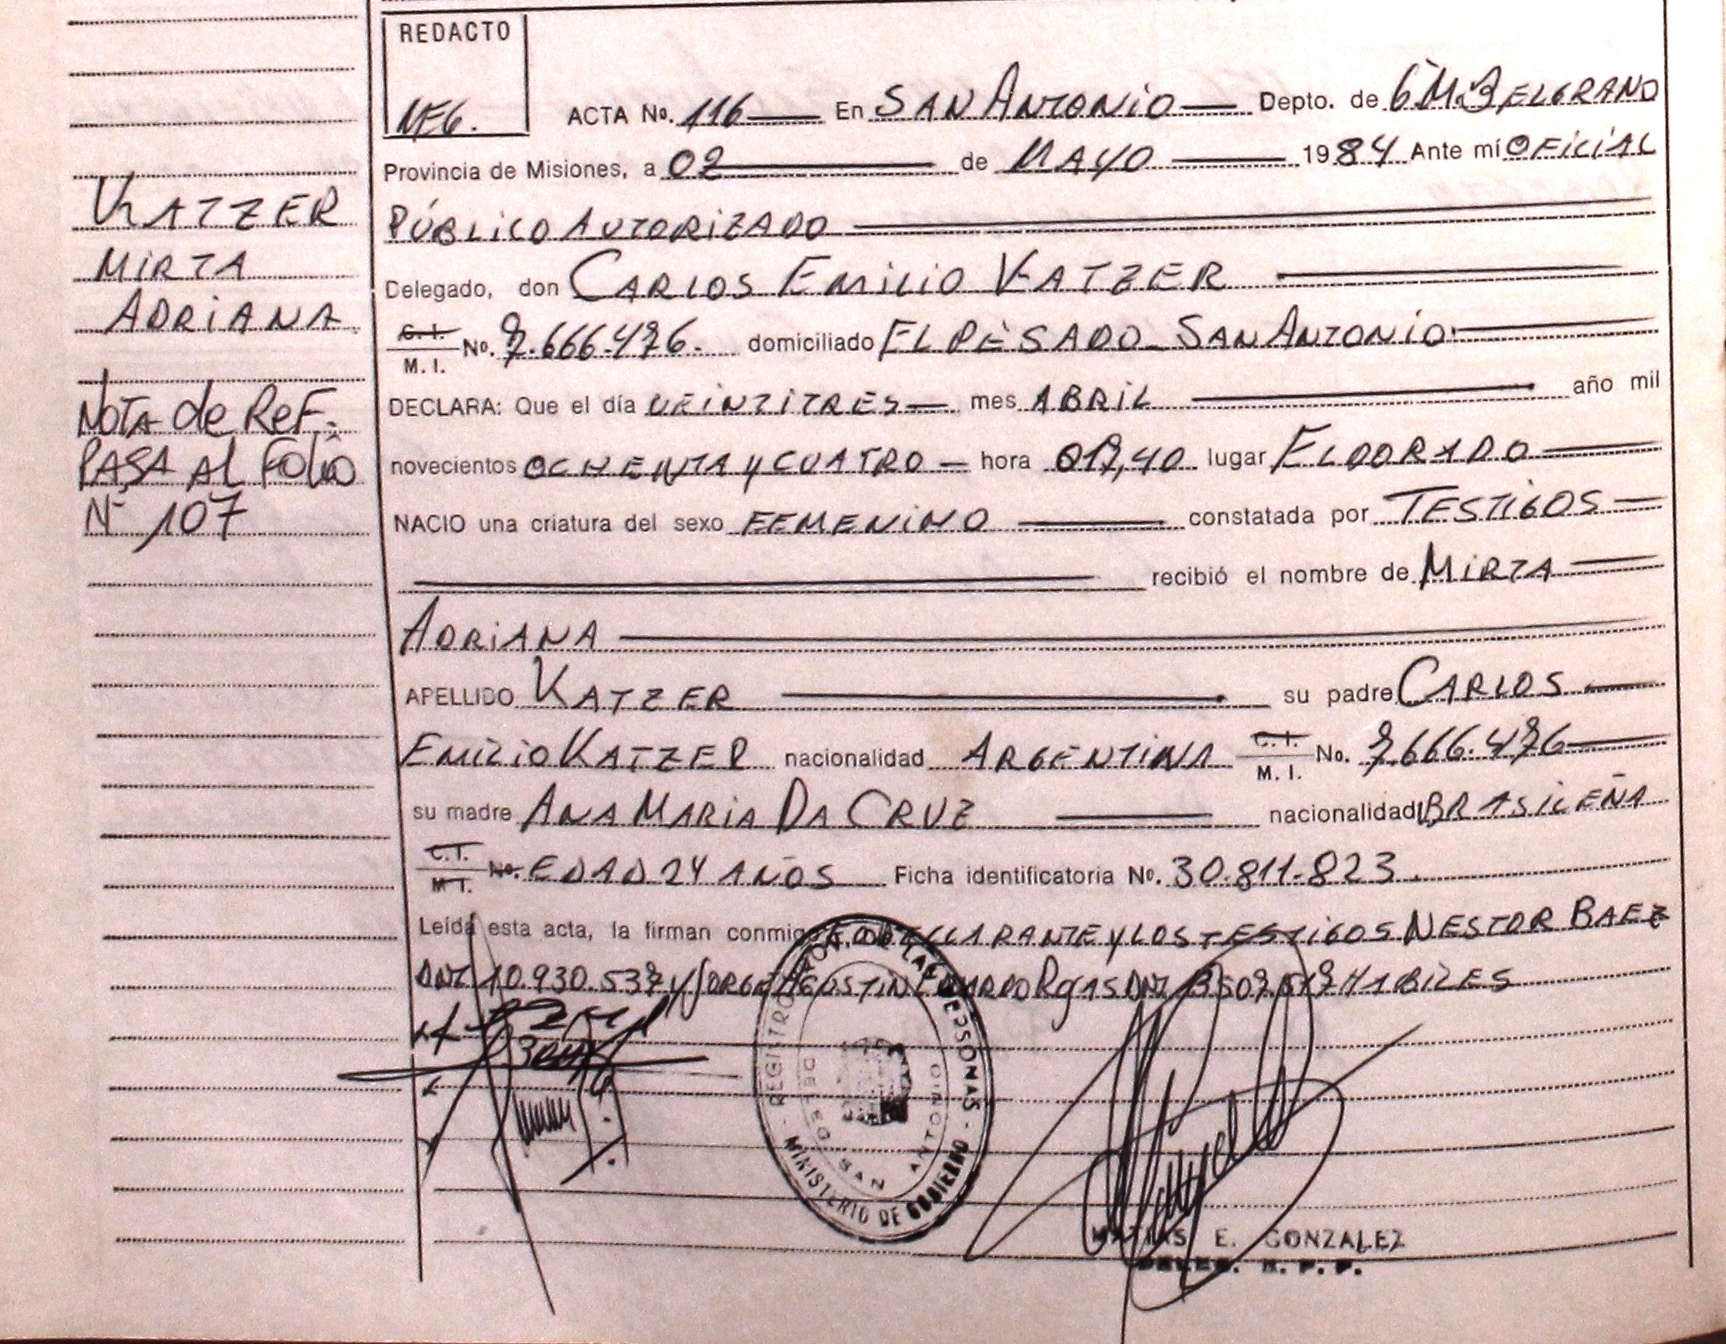 REDACTO
MEG.
ACTA No. 116 En SAN ANTONIO Depto. de G M. BELGRANO
Provincia de Misiones, a 02 de MAYO 1984 Ante mí OFICIAL
PÚBLICO AUTORIZADO
Delegado, don CARLOS EMILIO KATZER
C. I. / M. I. No. 7.666.476. domiciliado EL PESADO - SAN ANTONIO
DECLARA: Que el día VEINTITRES mes ABRIL año mil
novecientos OCHENTA y CUATRO hora 017,40 lugar ELDORADO
NACIO una criatura del sexo FEMENINO constatada por TESTIGOS
recibió el nombre de MIRTA
ADRIANA
APELLIDO KATZER su padre CARLOS
EMILIO KATZER nacionalidad ARGENTINA C. I. / M. I. No. 7.666.476
su madre ANA MARIA DA CRUZ nacionalidad BRASILEÑA
C. I. / M. I. No. EDAD 24 AÑOS Ficha identificatoria No. 30.811.823.
Leída esta acta, la firman conmigo, EL DECLARANTE y LOS TESTIGOS NESTOR BAEZ
DNI 10.930.537 y JORGE AGUSTIN EDUARDO ROJAS DNI HABILES
KATZER
MIRTA
ADRIANA
NOTA de REF.
PASA Al FOLIO
Nº 107
REGISTRO DE LAS PERSONAS
DELEG. SAN ANTONIO
MINISTERIO DE GOBIERNO
MATIAS E. GONZALEZ
DELEG. R. P. P.